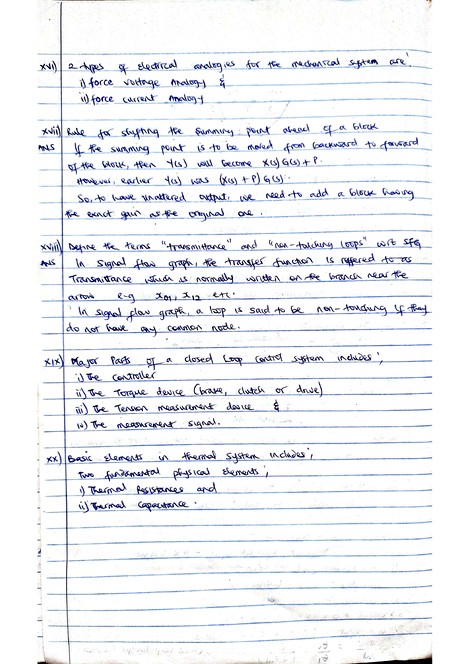 xvi) 2 types of electrical analogies for the mechanical system are;
i) force voltage Analogy &
ii) force current Analogy
xvii) Rule for shifting the Summing point ahead of a block
ANS If the summing point is to be moved from backward to forward
of the block, then Y(s) will become X(s)G(s) + P.
However, earlier Y(s) was (X(s) + P)G(s).
So, to have unaltered output, we need to add a block having
the exact gain as the original one.
xviii) Define the terms "transmittance" and "non-touching loops" wrt SFG
ANS In signal flow graph, the transfer function is reffered to as
Transmittance which is normally written on the branch near the
arrow e-g x01, x12 etc.
In signal flow graph, a loop is said to be non-touching if they
do not have any common node.
xix) Major Parts of a closed Loop control system includes;
i) The controller
ii) The Torque device (brake, clutch or drive)
iii) The Tension measurement device &
iv) The measurement signal.
xx) Basic elements in thermal system includes;
Two fundamental physical elements;
i) Thermal Resistances and
ii) Thermal Capacitance.